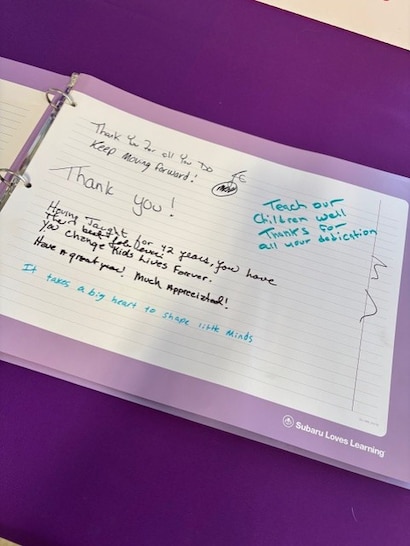 Thank You For all You Do
Keep Moving Forward!
Thank you!
Teach our
Children well
Thanks for
all your dedication
Having Taught for 42 years, you have
The best Job ever.
You Change Kids Lives Forever.
Have a great year! Much Appreciated!
It takes a big heart to shape little minds
Subaru Loves Learning